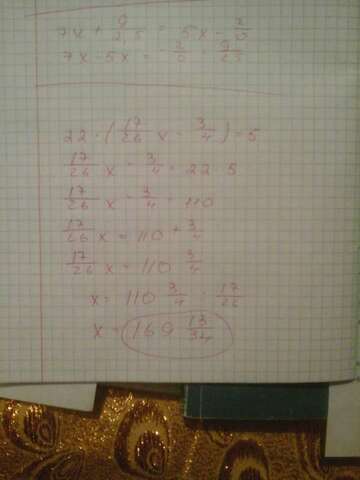 7x + 9/25 = 5x - 2/5
7x - 5x = - 2/5 - 9/25
22 : (17/26 x - 3/4) = 5
17/26 x - 3/4 = 22 · 5
17/26 x - 3/4 = 110
17/26 x = 110 + 3/4
17/26 x = 110 3/4
x = 110 3/4 : 17/26
x = 169 13/34